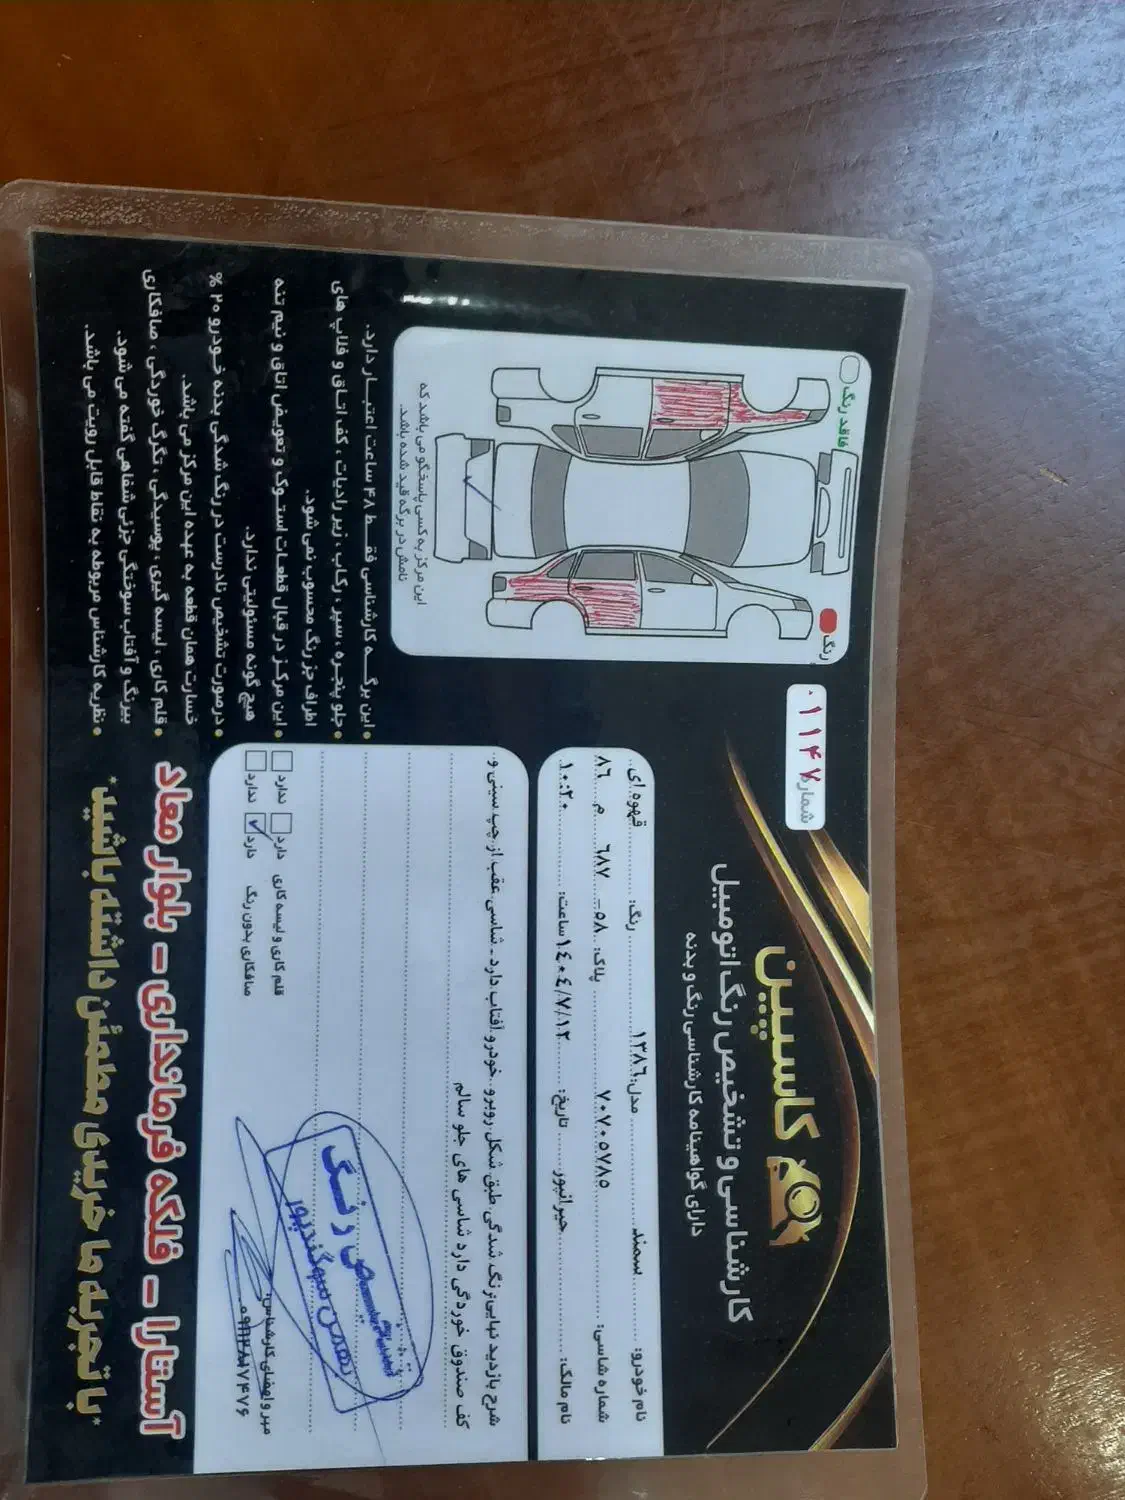 کاسپین
کارشناسی و تشخیص رنگ اتومبیل
دارای گواهینامه کارشناسی رنگ و بدنه
شماره ۰۱۱۴۷
نام خودرو: سمند مدل: ۱۳۸۶ رنگ: قهوه ای
شماره شاسی: ۷۰۷۰۵۷۸۵ پلاک: ۵۸ - ۶۸۷ م ۸۶
نام مالک: جیرانپور تاریخ: ۱۴۰۴/۷/۱۲ ساعت: ۱۰:۲۰
شرح بازدید نهایی: رنگ شدگی طبق شکل روبرو. خودرو آفتاب دارد - شاسی عقب از چپ سینی و
کف صندوق خوردگی دارد شاسی های جلو سالم
قلم کاری و لیسه کاری دارد ندارد
صافکاری بدون رنگ دارد ندارد
مهر و امضای کارشناس:
فاقد رنگ
رنگ
این مرکز به کسی پاسخگو می باشد که
نامش در برگه قید شده باشد.
این برگه کارشناسی فقط ۴۸ ساعت اعتبار دارد.
جلو پنجره، سپر، رکاب، زیر رادیات، کف اتاق و قلاب های
اطراف جز رنگ محسوب نمی شود.
این مرکز در قبال قطعات استوک و تعویض اتاق و نیم تنه
هیچ گونه مسئولیتی ندارد.
درصورت تشخیص نادرست در رنگ شدگی بدنه خودرو ۲۰ %
خسارت همان قطعه به عهده این مرکز می باشد.
قلم کاری، لیسه گیری، پوسیدگی، تگرگ خوردگی، صافکاری
بیرنگ و آفتاب سوختگی جزئی شفاهی گفته می شود.
نظریه کارشناس مربوطه به نقاط قابل رویت می باشد.
آستارا - فلکه فرمانداری - بلوار معاد
*با تجربه ما خریدی مطمئن داشته باشید*